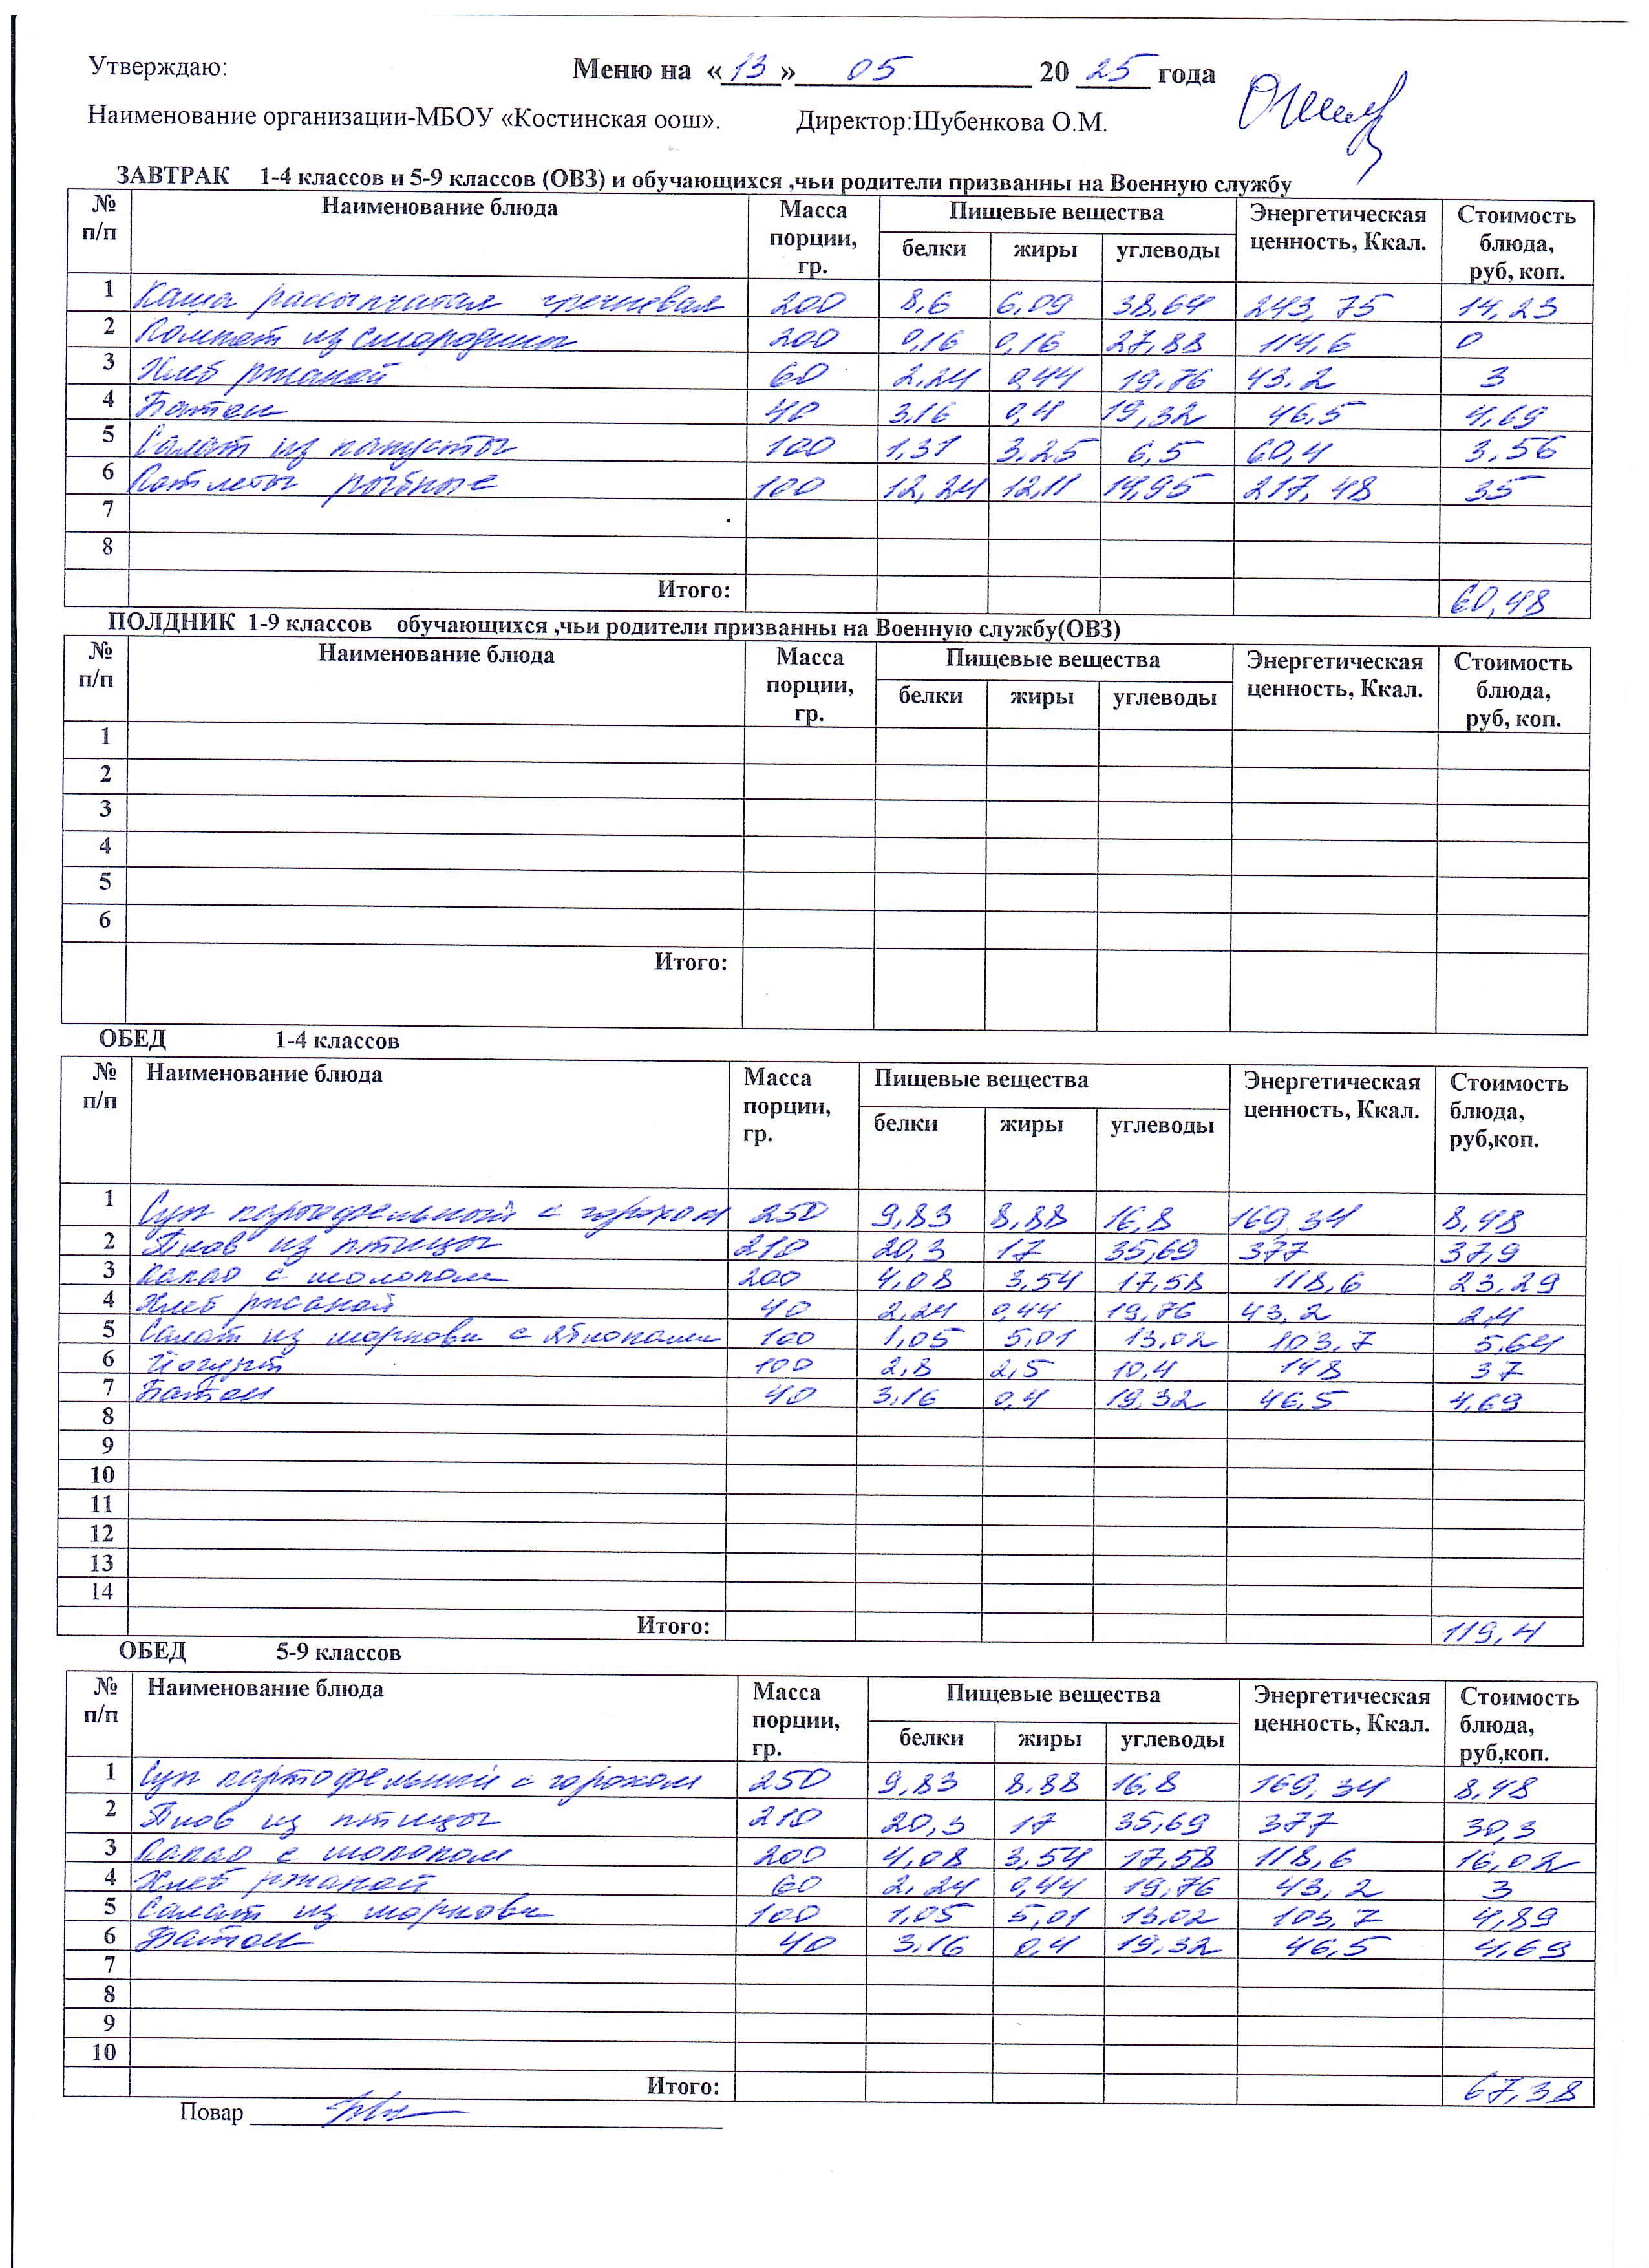 Утверждаю: Меню на «13» 05 20 25 года
Наименование организации-МБОУ «Костинская оош». Директор:Шубенкова О.М.
ЗАВТРАК 1-4 классов и 5-9 классов (ОВЗ) и обучающихся ,чьи родители призванны на Военную службу
№ п/п Наименование блюда Масса порции, гр. Пищевые вещества Энергетическая ценность, Ккал. Стоимость блюда, руб, коп.
белки жиры углеводы
1 Каша рассыпчатая гречневая 200 8,6 6,09 38,64 243,75 14,23
2 Компот из смородины 200 0,16 0,16 27,88 114,6 0
3 Хлеб ржаной 60 2,24 0,44 19,76 43.2 3
4 Батон 40 3,16 0,4 19,32 46,5 4,69
5 Салат из капусты 100 1,31 3,25 6,5 60,4 3,56
6 Котлеты рыбные 100 12,24 12,11 14,95 217,48 35
7
8
Итого: 60,48
ПОЛДНИК 1-9 классов обучающихся ,чьи родители призванны на Военную службу(ОВЗ)
№ п/п Наименование блюда Масса порции, гр. Пищевые вещества Энергетическая ценность, Ккал. Стоимость блюда, руб, коп.
белки жиры углеводы
1
2
3
4
5
6
Итого:
ОБЕД 1-4 классов
№ п/п Наименование блюда Масса порции, гр. Пищевые вещества Энергетическая ценность, Ккал. Стоимость блюда, руб,коп.
белки жиры углеводы
1 Суп картофельный с горохом 250 9,83 8,88 16,8 169,34 8,48
2 Плов из птицы 210 20,3 17 35,69 377 37,9
3 Какао с молоком 200 4,08 3,54 17,58 118,6 23,29
4 Хлеб ржаной 40 2,24 0,44 19,76 43,2 2,4
5 Салат из моркови с яблоками 100 1,05 5,01 13,02 103,7 5,64
6 Йогурт 100 2,8 2,5 10,4 148 37
7 Батон 40 3,16 0,4 19,32 46,5 4,69
8
9
10
11
12
13
14
Итого: 119,4
ОБЕД 5-9 классов
№ п/п Наименование блюда Масса порции, гр. Пищевые вещества Энергетическая ценность, Ккал. Стоимость блюда, руб,коп.
белки жиры углеводы
1 Суп картофельный с горохом 250 9,83 8.88 16,8 169,34 8,48
2 Плов из птицы 210 20,3 17 35,69 377 30,3
3 Какао с молоком 200 4,08 3,54 17,58 118,6 16,02
4 Хлеб ржаной 60 2,24 0,44 19,76 43,2 3
5 Салат из моркови 100 1,05 5,01 13,02 103,7 4,89
6 Батон 40 3,16 0,4 19,32 46,5 4,69
7
8
9
10
Итого: 67,38
Повар